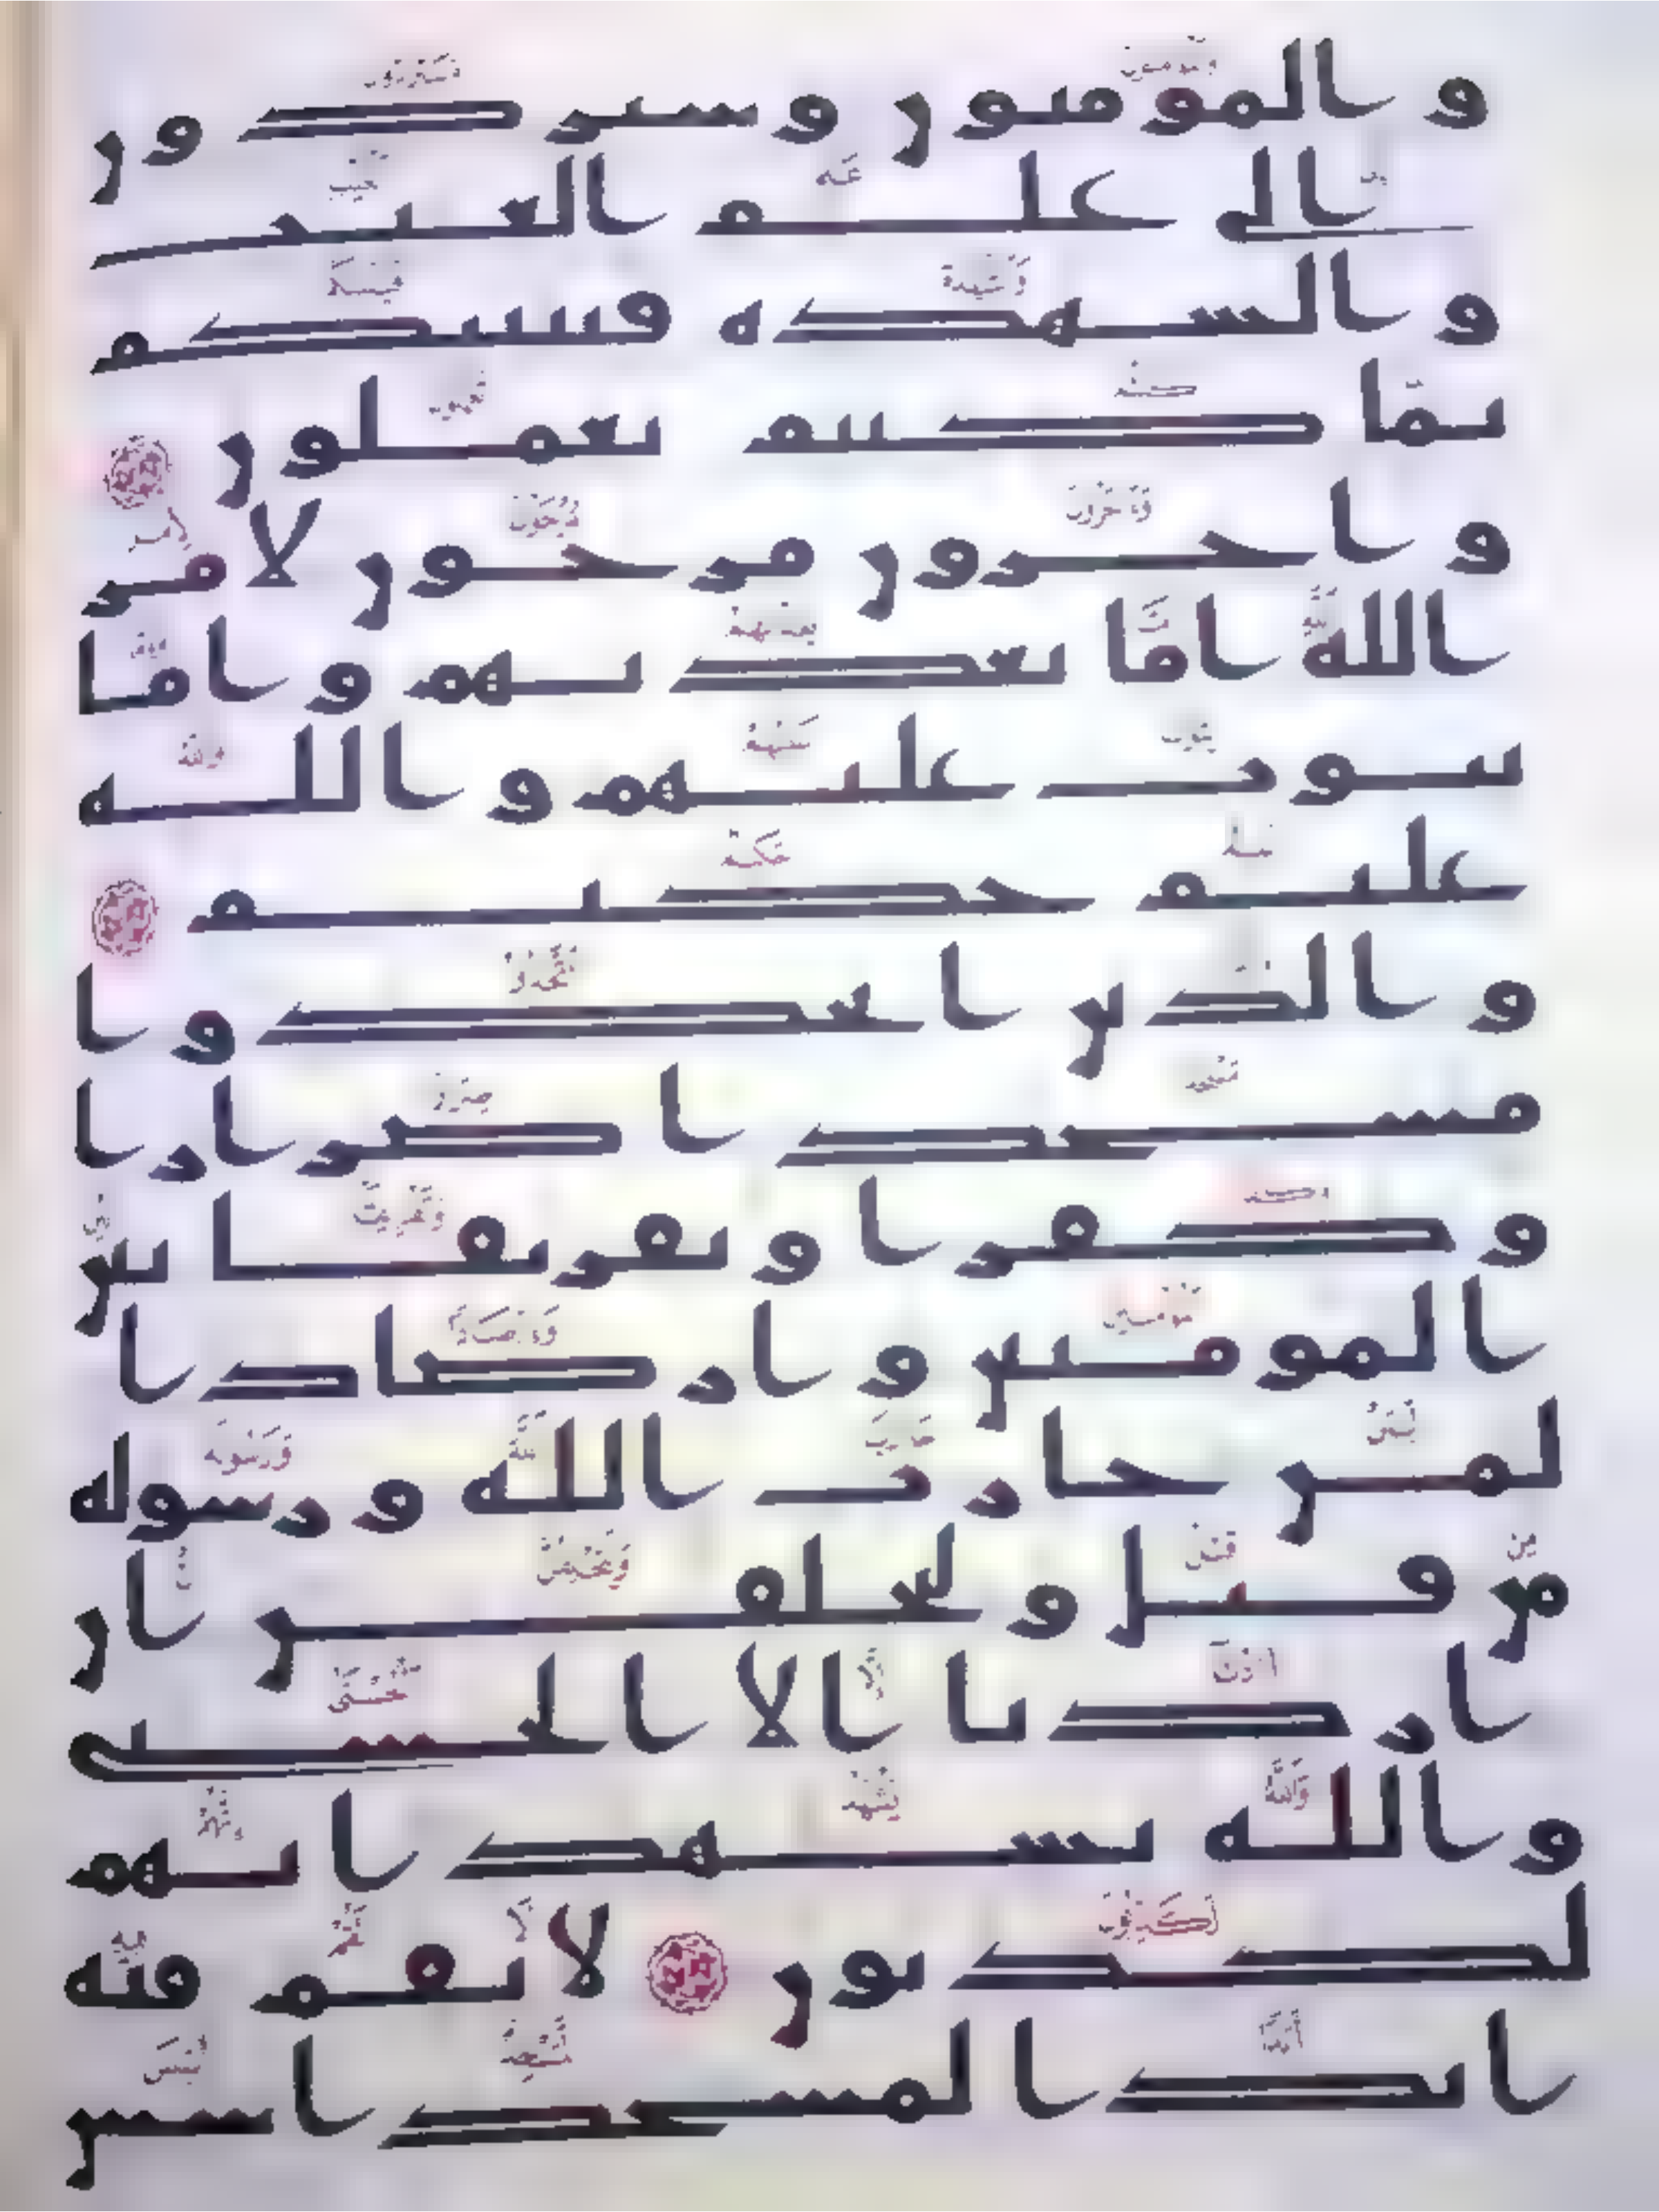 والمومنون وستردون
الى علم الغيب
والشهده فينبئكم
بما كنتم تعملون
واخرون مرجون لامر
الله اما يعذبهم واما
يتوب عليهم والله
عليم حكيم
والذين اتخذوا
مسجدا ضرارا
وكفرا وتفريقا بين
المومنين وارصادا
لمن حارب الله ورسوله
من قبل وليحلفن ان
اردنا الا الحسنى
والله يشهد انهم
لكذبون لا تقم فيه
ابدا لمسجد اسس